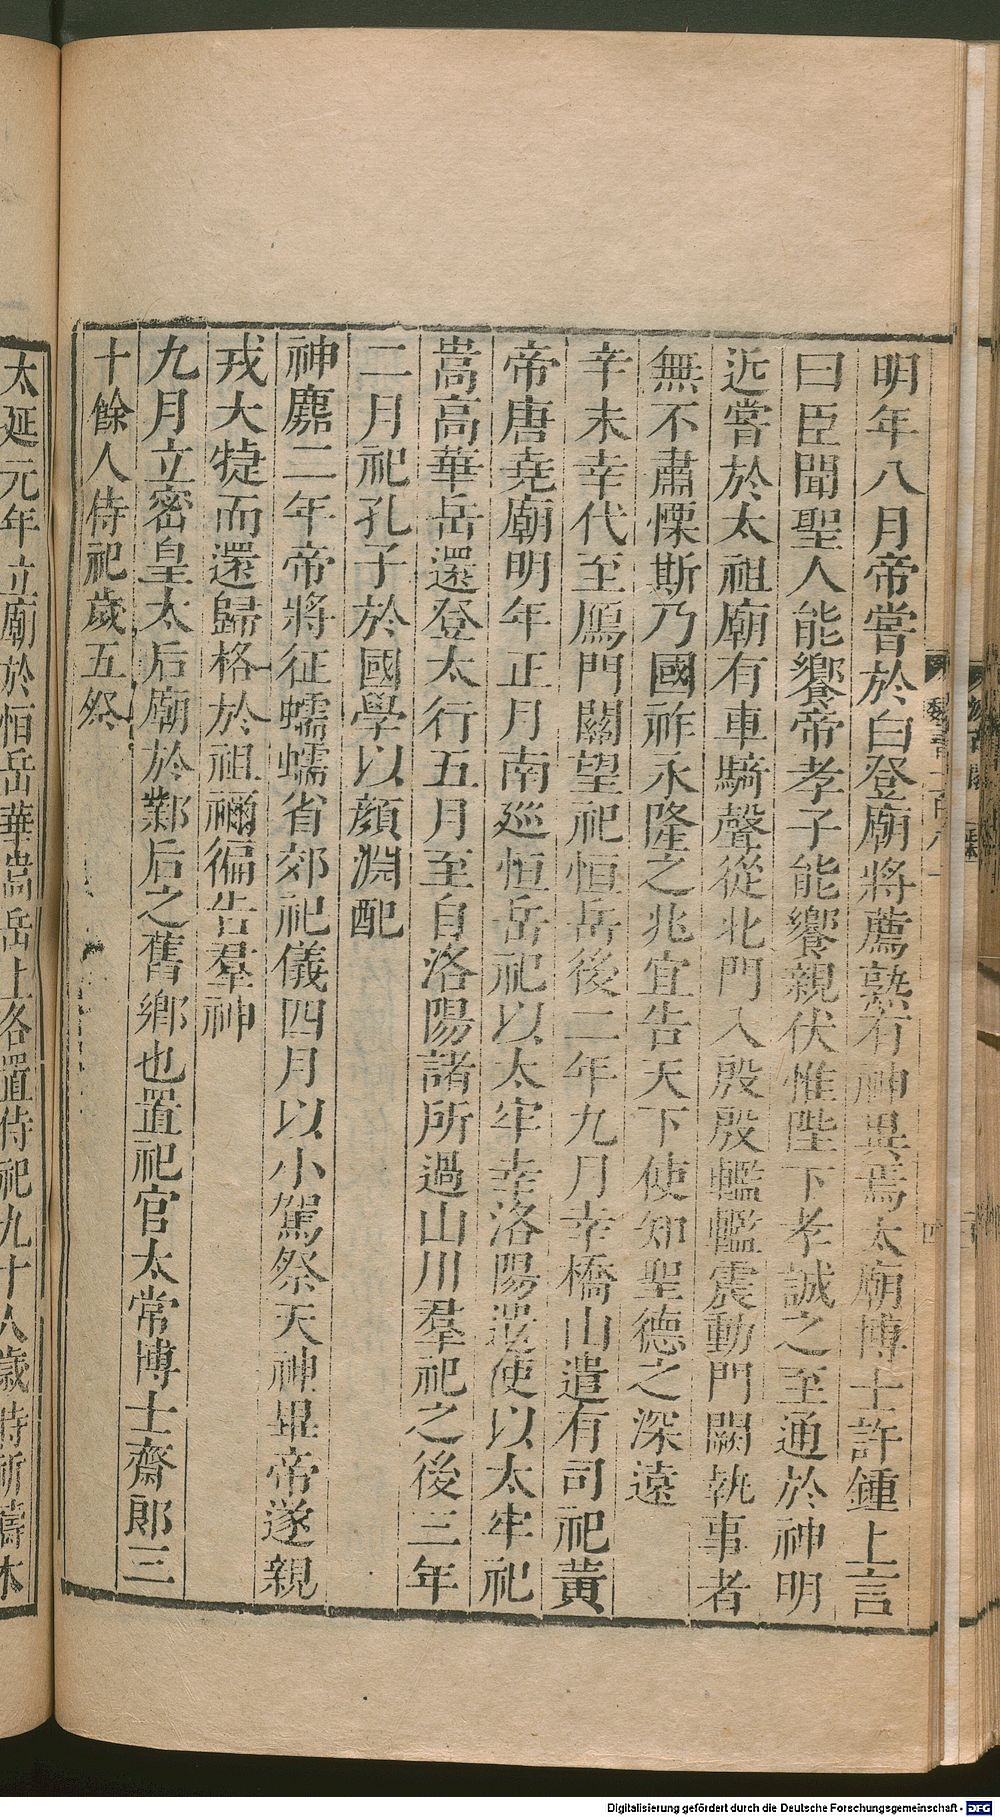 明年八月帝嘗於白登廟將薦熟有神異焉太廟博士許鍾上言
曰臣聞聖人能饗帝孝子能饗親伏惟陛下孝誠之至通於神明
近嘗於太祖廟有車騎聲從北門入殷殷轞轞震動門闕執事者
無不肅慄斯乃國祚永隆之兆宜告天下使知聖德之深遠
辛未幸代至鴈門關望祀恒岳後二年九月幸橋山遣有司祀黃
帝唐堯廟明年正月南巡恒岳祀以太牢幸洛陽遣使以太牢祀
嵩高華岳還登太行五月至自洛陽諸所過山川羣祀之後三年
二月祀孔子於國學以顏淵配
神䴥二年帝將征蠕蠕省郊祀儀四月以小駕祭天神畢帝遂親
戎大㨗而還歸格於祖禰徧告羣神
九月立密皇太后廟於鄴后之舊鄉也置祀官太常博士齋郎三
十餘人侍祀歲五祭
太延元年立廟於恒岳華嵩岳上各置侍祀九十人歲時祈禱水
Digitalisierung gefördert durch die Deutsche Forschungsgemeinschaft - DFG